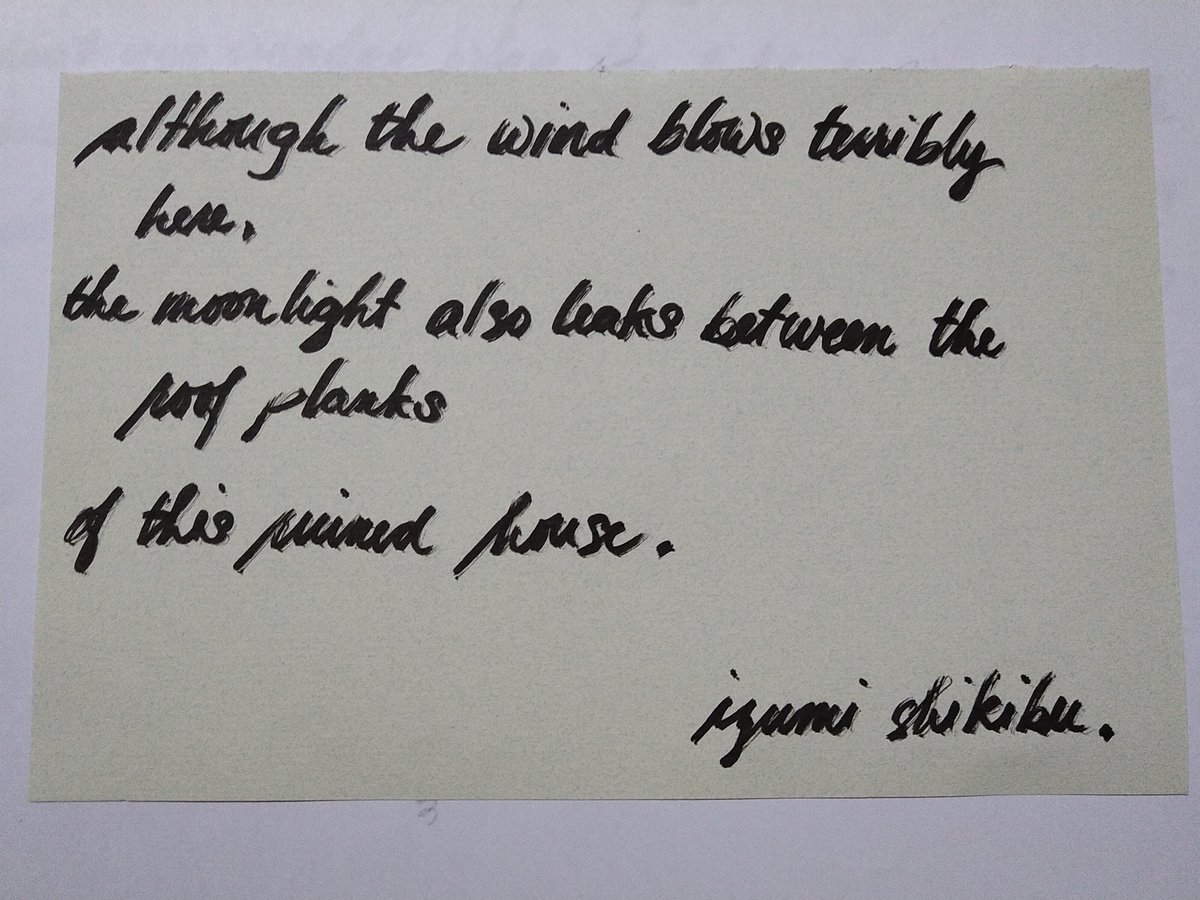 although the wind blows terribly
here,
the moonlight also leaks between the
roof planks
of this ruined house.
izumi shikibu.